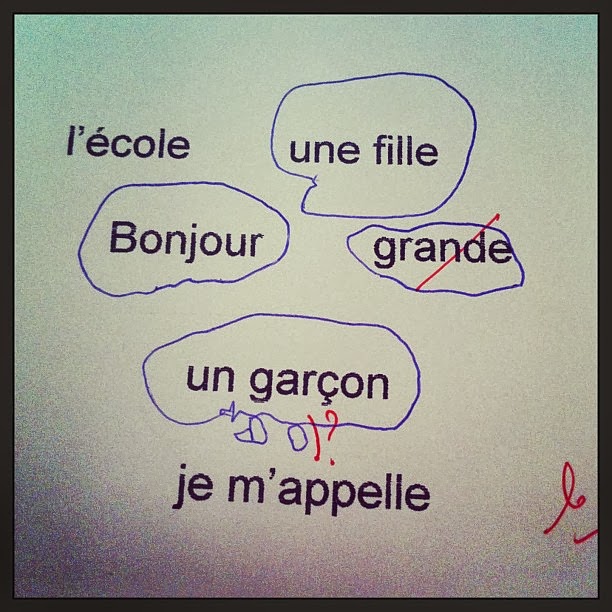 l'école
une fille
Bonjour
grande
un garçon
?
je m'appelle